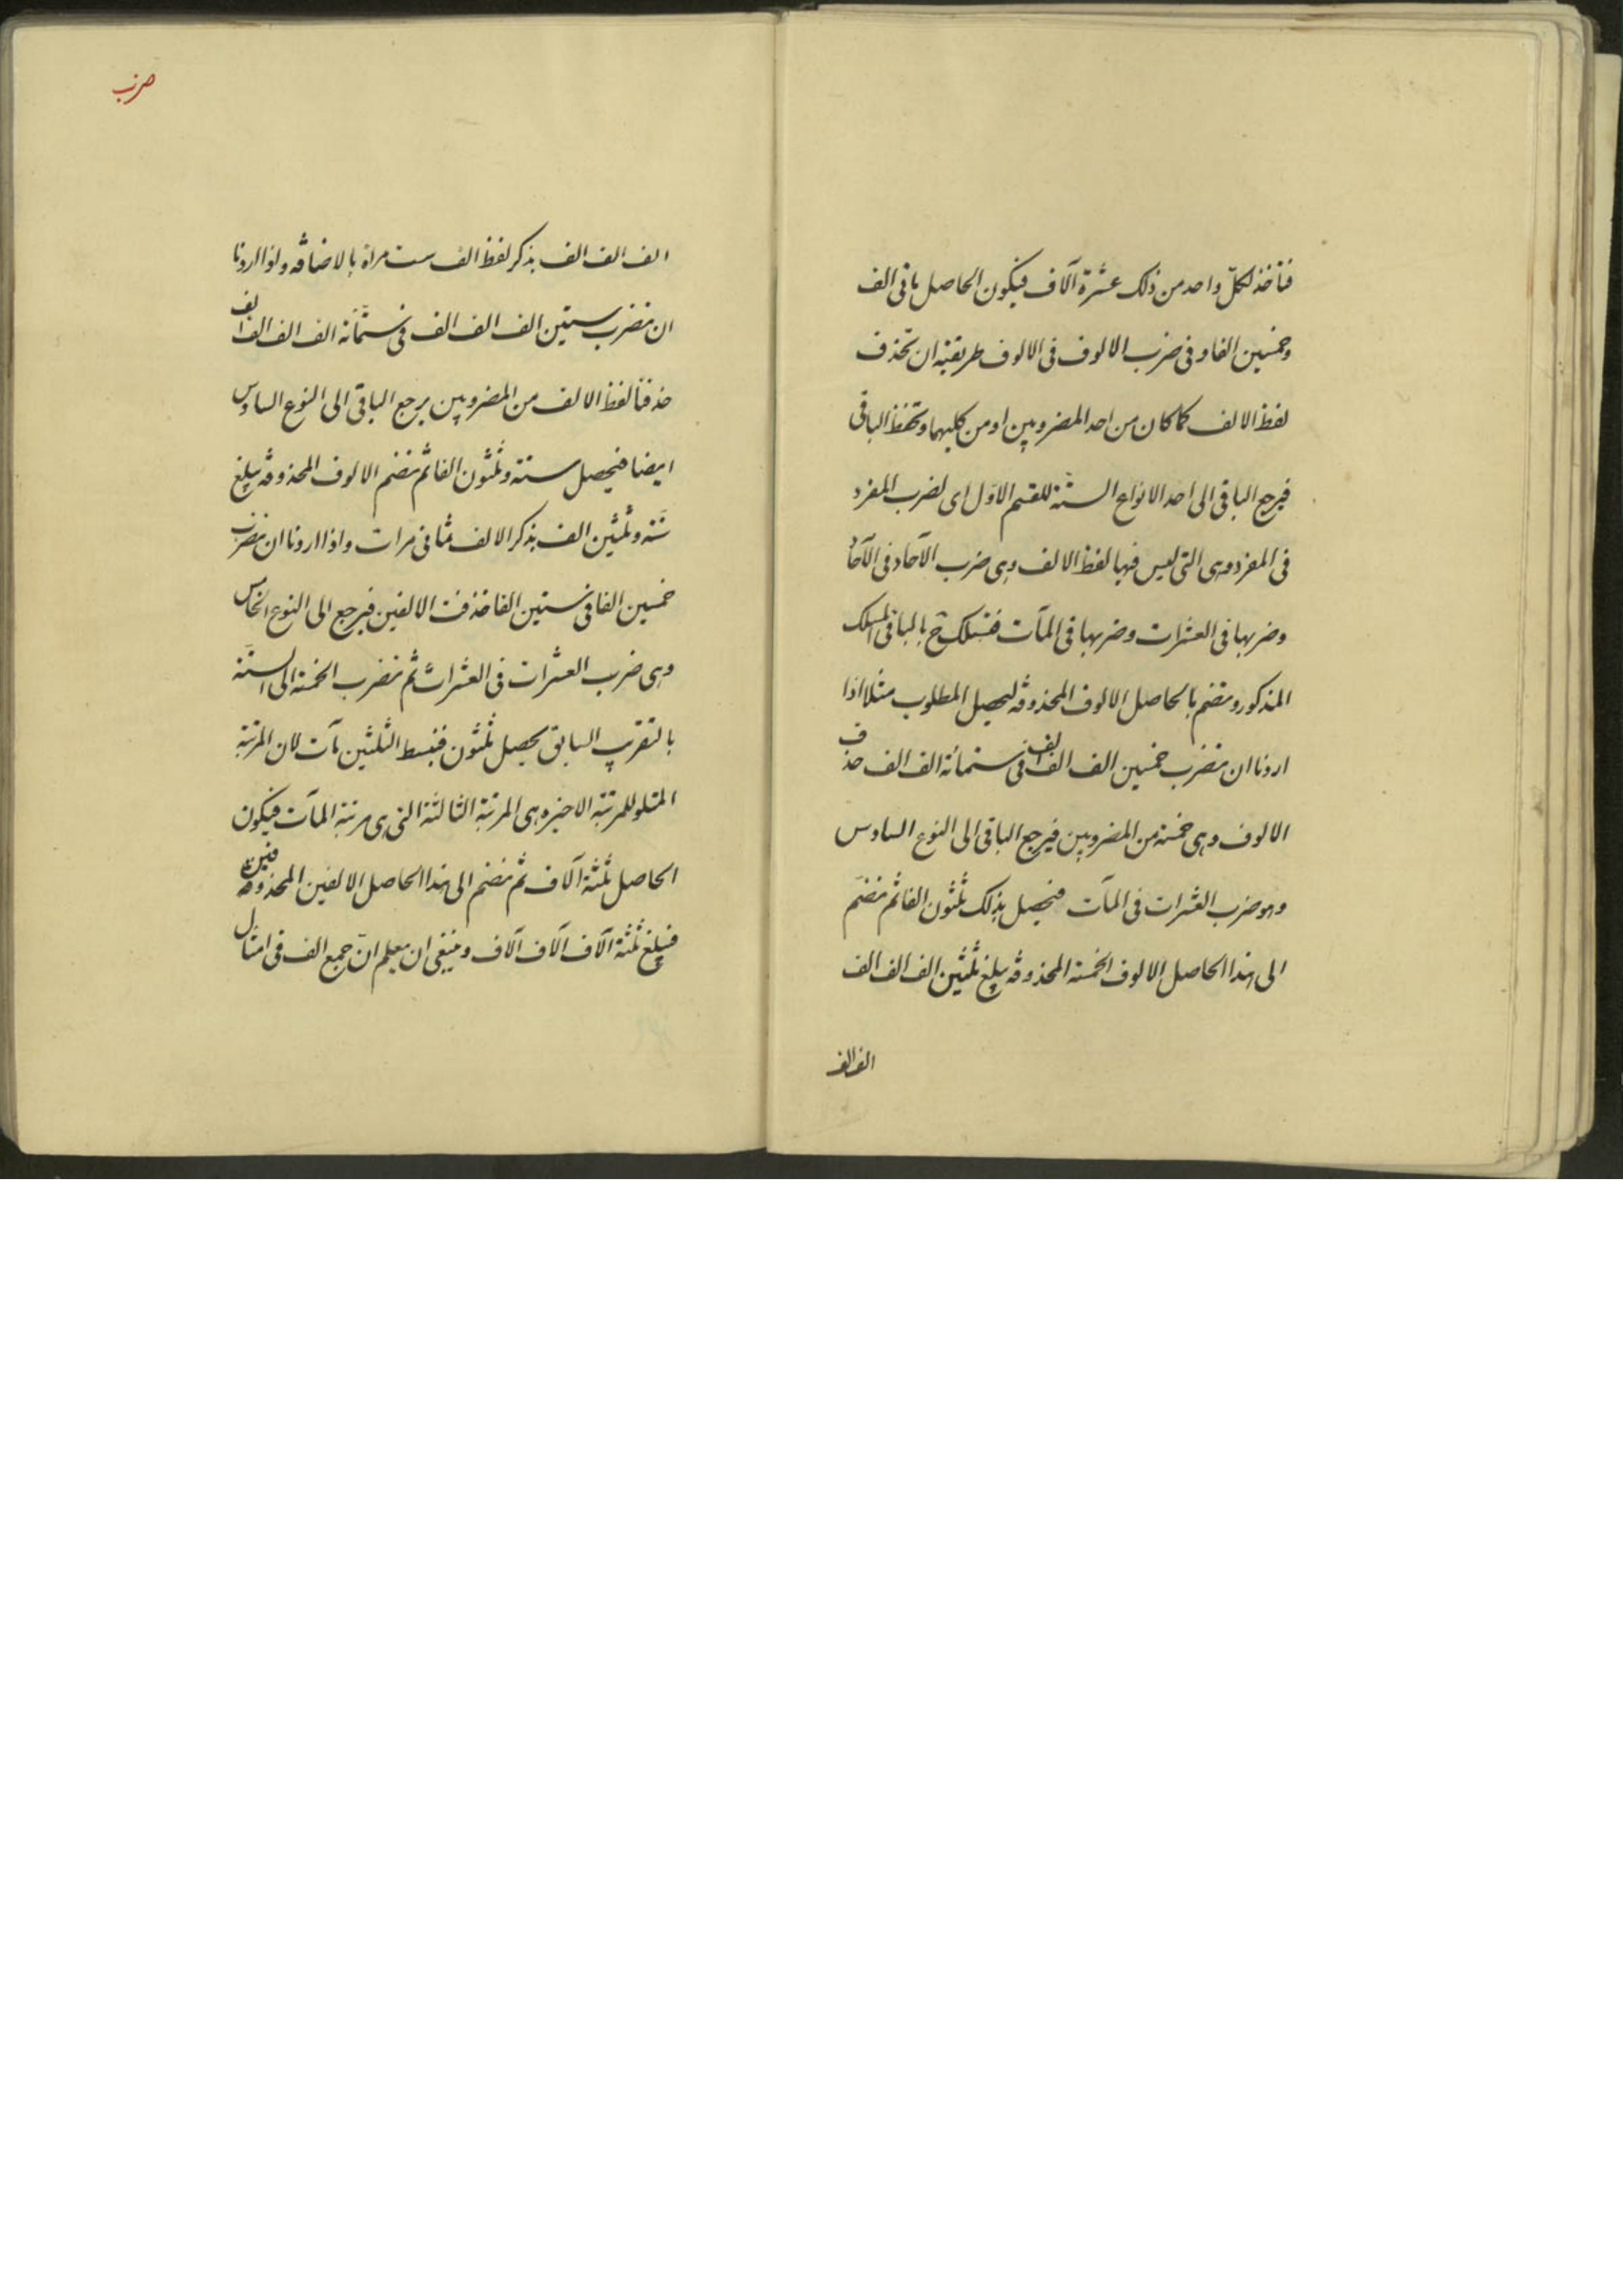 فنأخذ لكلّ واحد من ذلك عشرة آلاف فيكون الحاصل مأتى الف
وخمسين الفا و فى ضرب الالوف فى الالوف طريقته ان تحذف
لفظ الالف كما كان من احد المضروبين او من كليهما وتحفظ الباقى
فيرجع الباقى الى احد الانواع الستّة للقسم الاوّل اى لضرب المفرد
فى المفرد وهى التى ليس فيها لفظ الالف وهى ضرب الآحاد فى الآحاد
وضربها فى العشرات وضربها فى المآت فتسلك ح بالباقى المسلك
المذكور وتضم بالحاصل الالوف المحذوفة ليحصل المطلوب مثلا اذا
اردنا ان نضرب خمسين الف الف الف فى ستمائة الف الف حذف
الالوف وهى خمسة من المضروبين فيرجع الباقى الى النوع السادس
وهو ضرب العشرات فى المآت فيحصل بذلك ثلثون الفا ثم نضم
الى هذا الحاصل الالوف الخمسة المحذوفة يبلغ ثلثين الف الف الف
الف الف
ضرب
الف الف الف بذكر لفظ الف ست مراة بالاضافة واذا اردنا
ان نضرب ستين الف الف الف فى ستمّائة الف الف الف الف
حذفنا لفظ الالف من المضروبين يرجع الباقى الى النوع السادس
ايضا فيحصل ستة وثلثون الفا ثم نضم الالوف المحذوفة يبلغ
ستّة وثلثين الف بذكر الالف ثمانى مرات واذا اردنا ان نضرب
خمسين الفا فى ستين الفا حذفت الالفين فيرجع الى النوع الخامس
وهى ضرب العشرات فى العشرات ثم نضرب الخمسة الى الستّة
بالتقريب السابق يحصل ثلثون فنبسط الثلثين مآت لان المرتبة
المتلو للمرتبة الاخيرة هى المرتبة الثالثة التى هى مرتبة المآت فيكون
الحاصل ثلثة آلاف ثم نضم الى هذا الحاصل الالفين المحذوفين
فيبلغ ثلثة آلاف آلاف آلاف وينبغى ان يعلم انّ جمع الف فى امثال